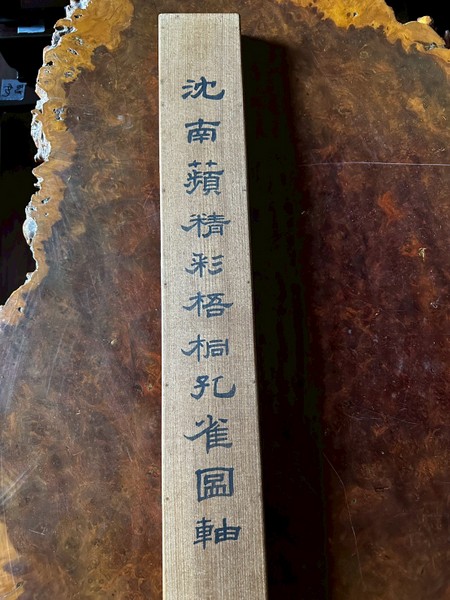 沈南蘋精彩梧桐孔雀圖軸